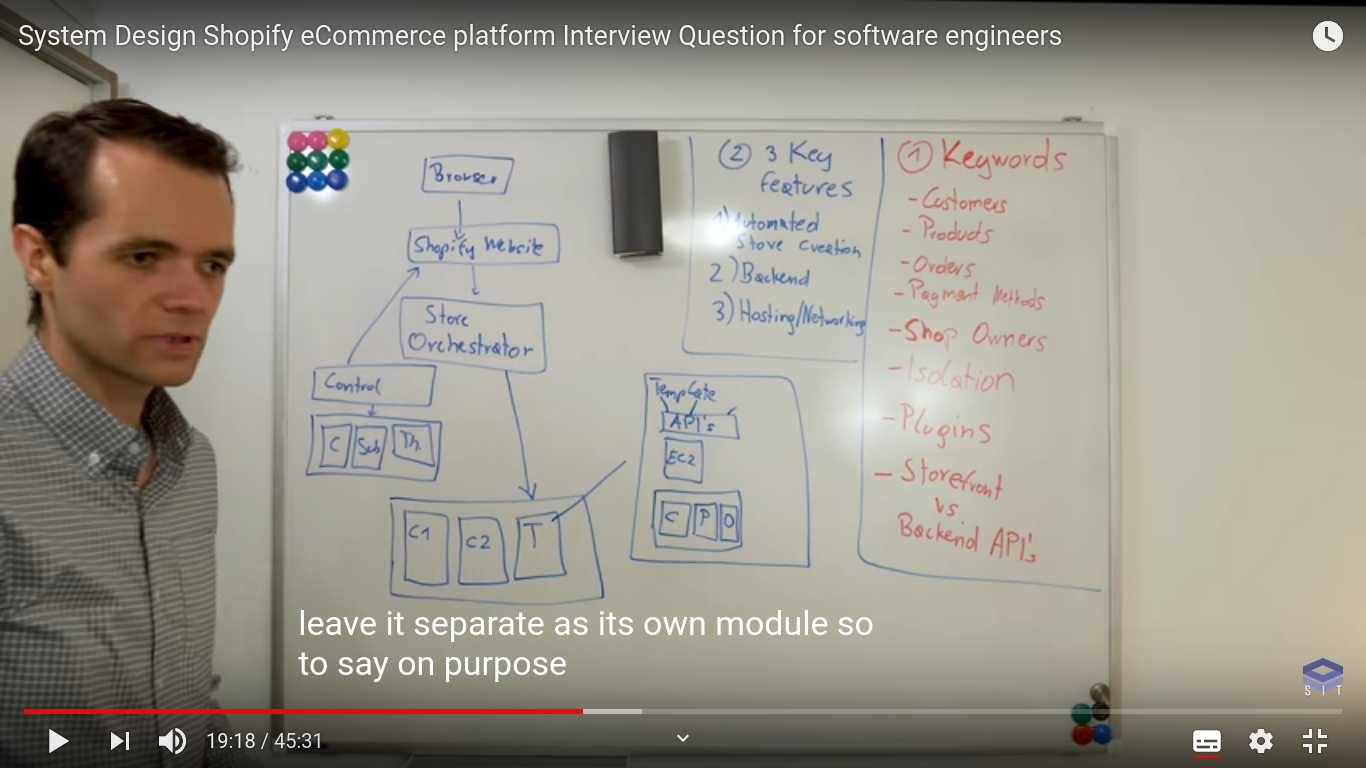 System Design Shopify eCommerce platform Interview Question for software engineers
Browser
Shopify Website
Store
Orchestrator
Control
C Sub Th.
C1 C2 T
Template
API's
EC2
C P O
② 3 Key
features
1) Automated
Store Creation
2) Backend
3) Hosting/Networking
① Keywords
- Customers
- Products
- Orders
- Payment Methods
- Shop Owners
- Isolation
- Plugins
- Storefront
vs
Backend API's
leave it separate as its own module so
to say on purpose
S I T
19:18 / 45:31